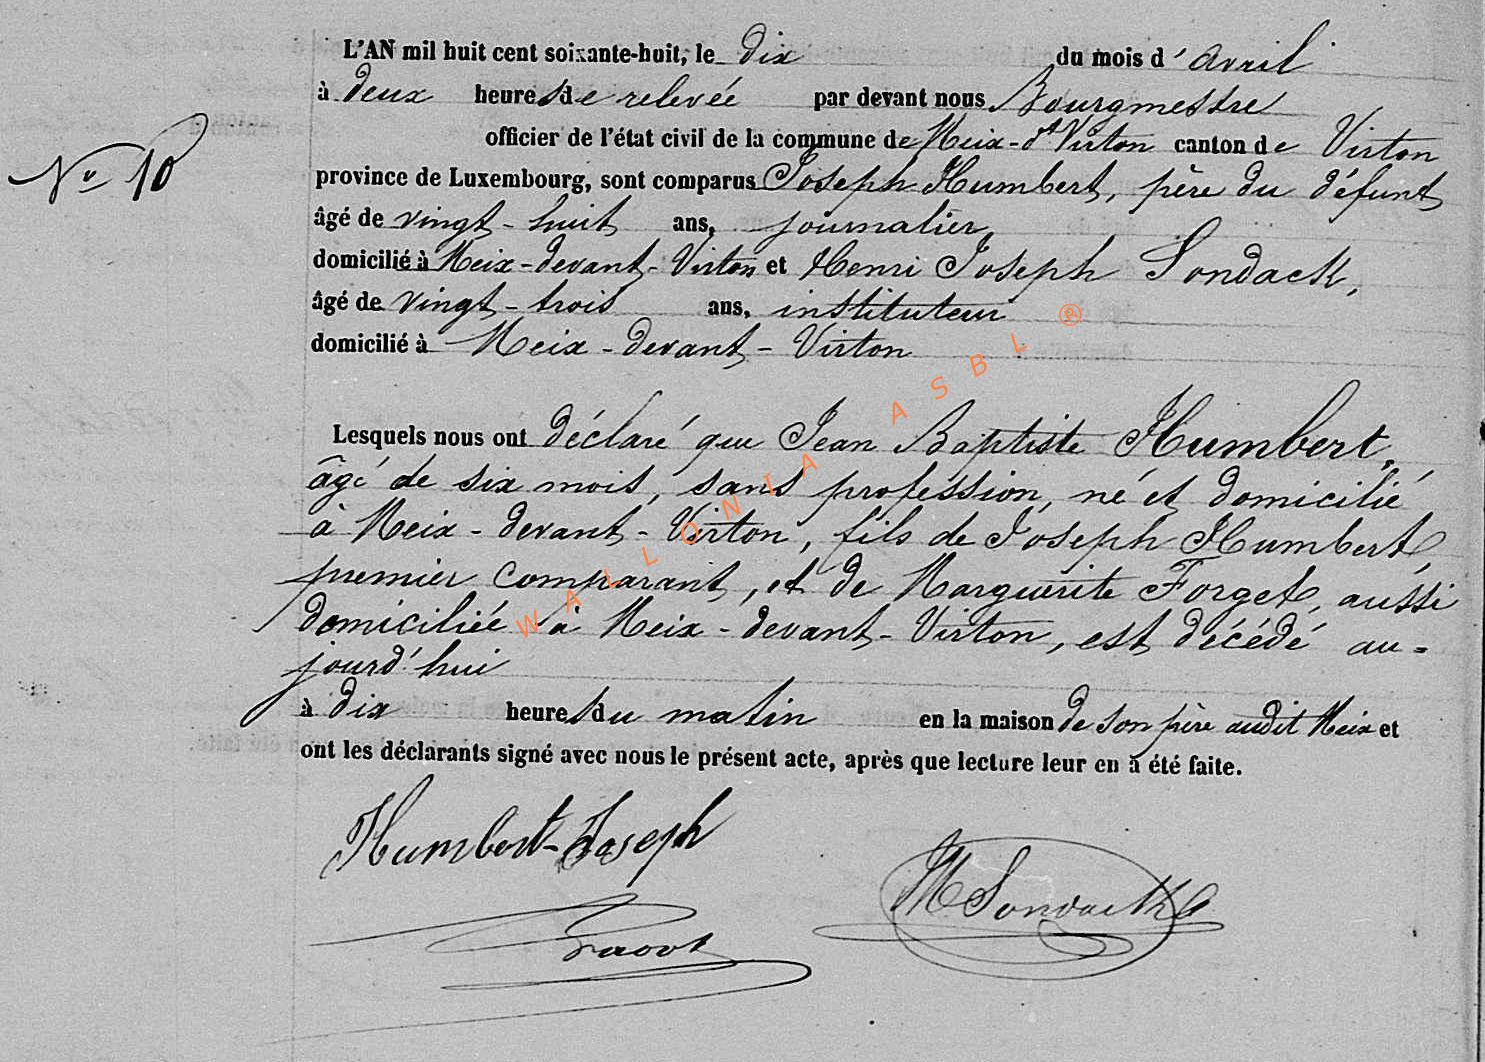 L'AN mil huit cent soixante-huit, le dix du mois d'avril
à deux heures de relevée par devant nous Bourgmestre
officier de l'état civil de la commune de Meix-dt Virton canton de Virton
N° 10
province de Luxembourg, sont comparus Joseph Humbert, père du défunt
âgé de vingt-huit ans, journalier,
domicilié à Meix-devant-Virton et Henri Joseph Sondack,
âgé de vingt-trois ans, instituteur
domicilié à Meix-devant-Virton
WALLONIA ASBL ®
Lesquels nous ont déclaré que Jean Baptiste Humbert,
âgé de six mois, sans profession, né et domicilié
à Meix-devant-Virton, fils de Joseph Humbert,
premier comparant, et de Marguerite Forget, aussi
domiciliée à Meix-devant-Virton, est décédé au-
jourd'hui
à dix heures du matin en la maison de son père audit Meix et
ont les déclarants signé avec nous le présent acte, après que lecture leur en a été faite.
Humbert-Joseph
Sondack